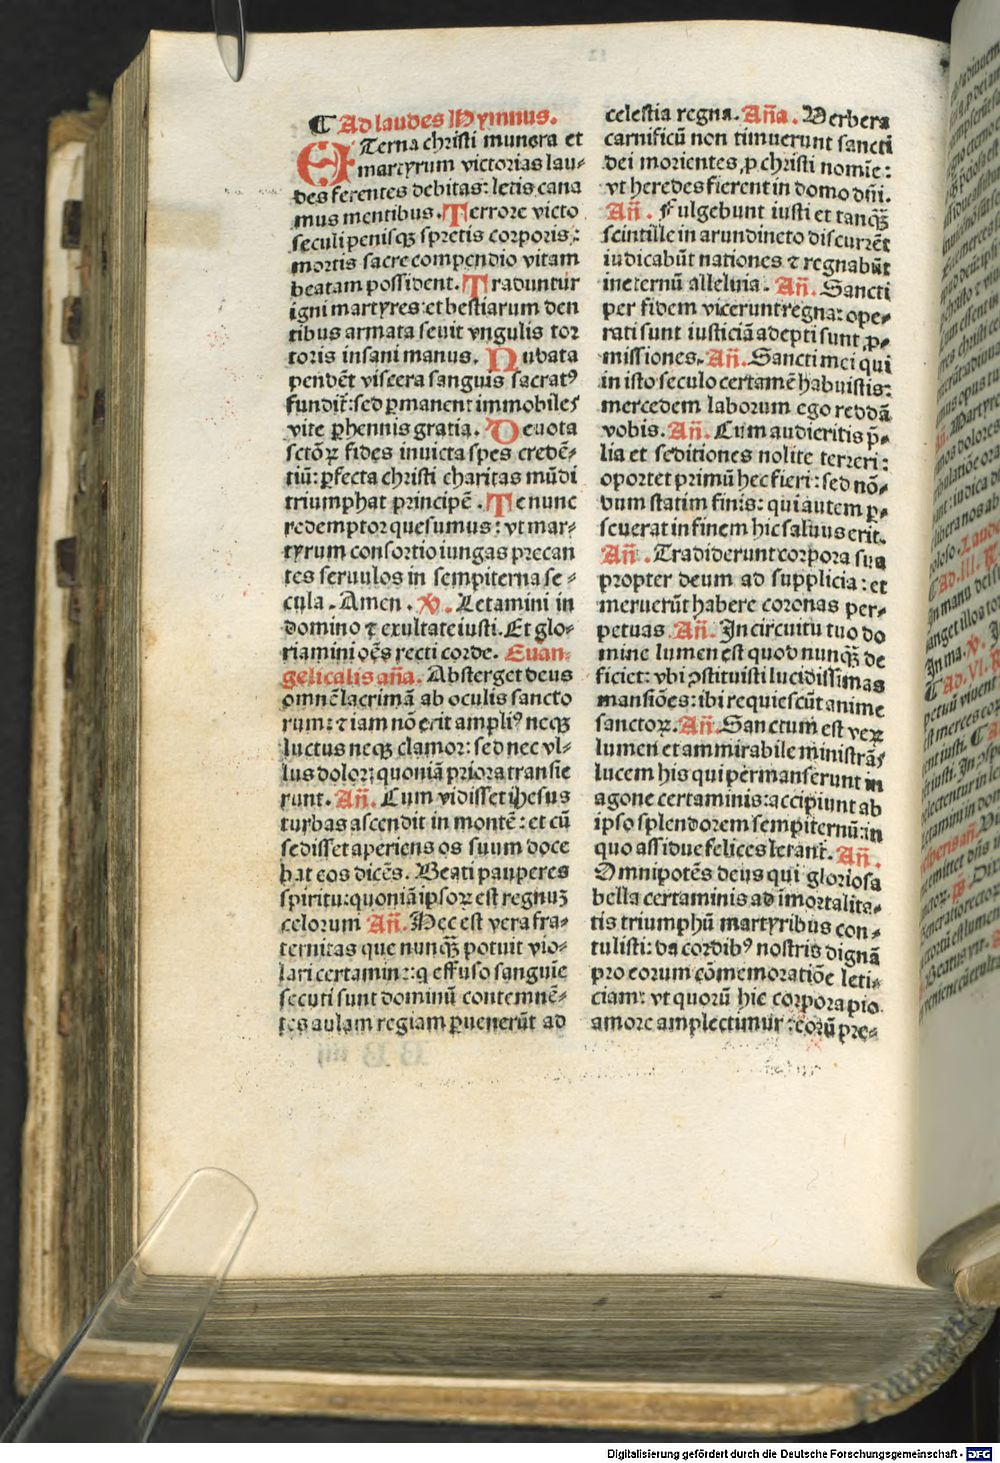 ¶ Ad laudes Hymnus.
ETerna christi munera et
martyrum victorias lau-
des ferentes debitas: letis cana
mus mentibus. Terrore victo
seculi penisqꝫ spretis corporis:
mortis sacre compendio vitam
beatam possident. Traduntur
igni martyres: et bestiarum den
tibus armata seuit vngulis tor
toris insani manus. Nudata
pendēt viscera sanguis sacratꝰ
fundit᷑: sed ꝑmanent immobiles
vite ꝑhennis gratia. Deuota
sctōꝝ fides inuicta spes credē-
tiū: ꝑfecta christi charitas mūdi
triumphat principē. Te nunc
redemptor quesumus: vt mar-
tyrum consortio iungas precan
tes seruulos in sempiterna se-
cula. Amen. V. Letamini in
domino ⁊ exultate iusti. Et glo-
riamini oēs recti corde. Euan-
gelicalis aña. Absterget deus
omnē lacrimā ab oculis sancto
rum: ⁊ iam nō erit ampliꝰ neqꝫ
luctus neqꝫ clamor: sed nec vl-
lus dolor: quoniā priora transie
runt. Añ. Cum vidisset ihesus
turbas ascendit in montē: et cū
sedisset aperiens os suum doce
bat eos dicēs. Beati pauperes
spiritu: quoniā ipsoꝝ est regnuꝫ
celorum Añ. Hec est vera fra-
ternitas que nunqꝫ̄ potuit vio-
lari certamine: q effuso sanguie
secuti sunt dominū contemnē-
tes aulam regiam ꝑuenerūt ad
celestia regna. Aña. Verbera
carnificū non timuerunt sancti
dei morientes ꝓ christi nomie:
vt heredes fierent in domo dñi.
Añ. Fulgebunt iusti et tanqꝫ̄
scintille in arundineto discurrēt
iudicabūt nationes ⁊ regnabūt
in eternū alleluia. Añ. Sancti
per fidem vicerunt regna: ope-
rati sunt iusticiā adepti sunt ꝓ-
missiones. Añ. Sancti mei qui
in isto seculo certamē habuistis:
mercedem laborum ego reddā
vobis. Añ. Cum audieritis p̄-
lia et seditiones nolite terreri:
oportet primū hec fieri: sed nō-
dum statim finis: qui autem ꝑ-
seuerat in finem hic saluus erit.
Añ. Tradiderunt corpora sua
propter deum ad supplicia: et
meruerūt habere coronas per-
petuas. Añ. In circuitu tuo do
mine lumen est quod nunqꝫ̄ de
ficiet: vbi ꝯstituisti lucidissimas
mansiōes: ibi requiescūt anime
sanctoꝝ. Añ. Sanctum est veꝝ
lumen et ammirabile ministrās
lucem his qui permanserunt in
agone certaminis: accipiunt ab
ipso splendorem sempiternū: in
quo assidue felices letant᷑. Añ.
Omnipotēs deus qui gloriosa
bella certaminis ad īmortalita-
tis triumphū martyribus con-
tulisti: da cordibꝰ nostris dignā
pro eorum cōmemoratiōe leti-
ciam: vt quorū hic corpora pio
amore amplectimur: eorū pre-
Digitalisierung gefördert durch die Deutsche Forschungsgemeinschaft - DFG